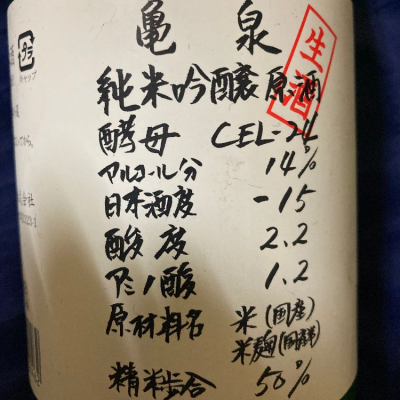 亀泉
生酒
純米吟醸原酒
酵母 CEL-24
アルコール分 14%
日本酒度 -15
酸度 2.2
アミノ酸 1.2
原材料名 米(国産)
米麹(国産米)
精米歩合 50%
キャップ